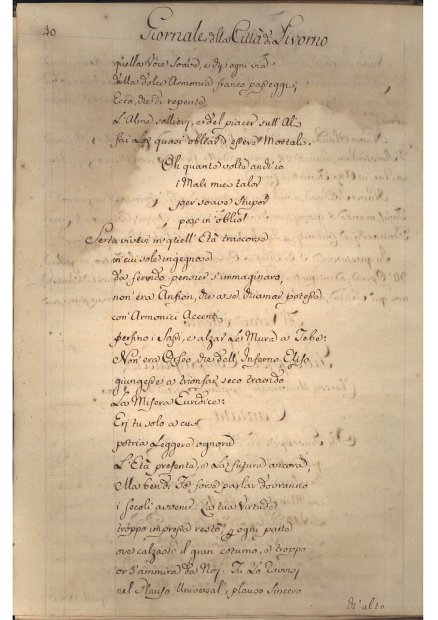 40
Giornale della Città di Livorno
quella Voce Soave, e di ogni
della dolce Armonia franco passeggi,
Ecco, che di repente
L'Alme sollievi, e del piacer sull'Al
fai Lor quasi obliar d'esser Mortali.
Oh quante volte anch'io
i Mali miei talor
per soave Stupor
pose in oblio!
Se tu vivevi in quell'Età trascorse
in cui sole ingegnose
da fervido pensier s'immaginaro,
non era Anfion, che a se chiamar potessa
con Armonici Accenti
persino i Sassi, e alzar Le Mura a Tebe:
Non era Orfeo, che dall'Inferno Eliso
giungesse a trionfar, seco traendo
La Misera Euridice:
Eri tu solo a cui
potria Leggere ognora
L'Età presente, e La futura ancora,
Ma ben di Te forse parlar dovranno
i secoli avvenir. La tua Virtude
troppo impressa restò, ogni parte
ove calzasti il gran coturno, e troppo
or s'ammira da Noi. Tu Lo ravvisi
nel Plauso Universal', plauso sincero
di alto